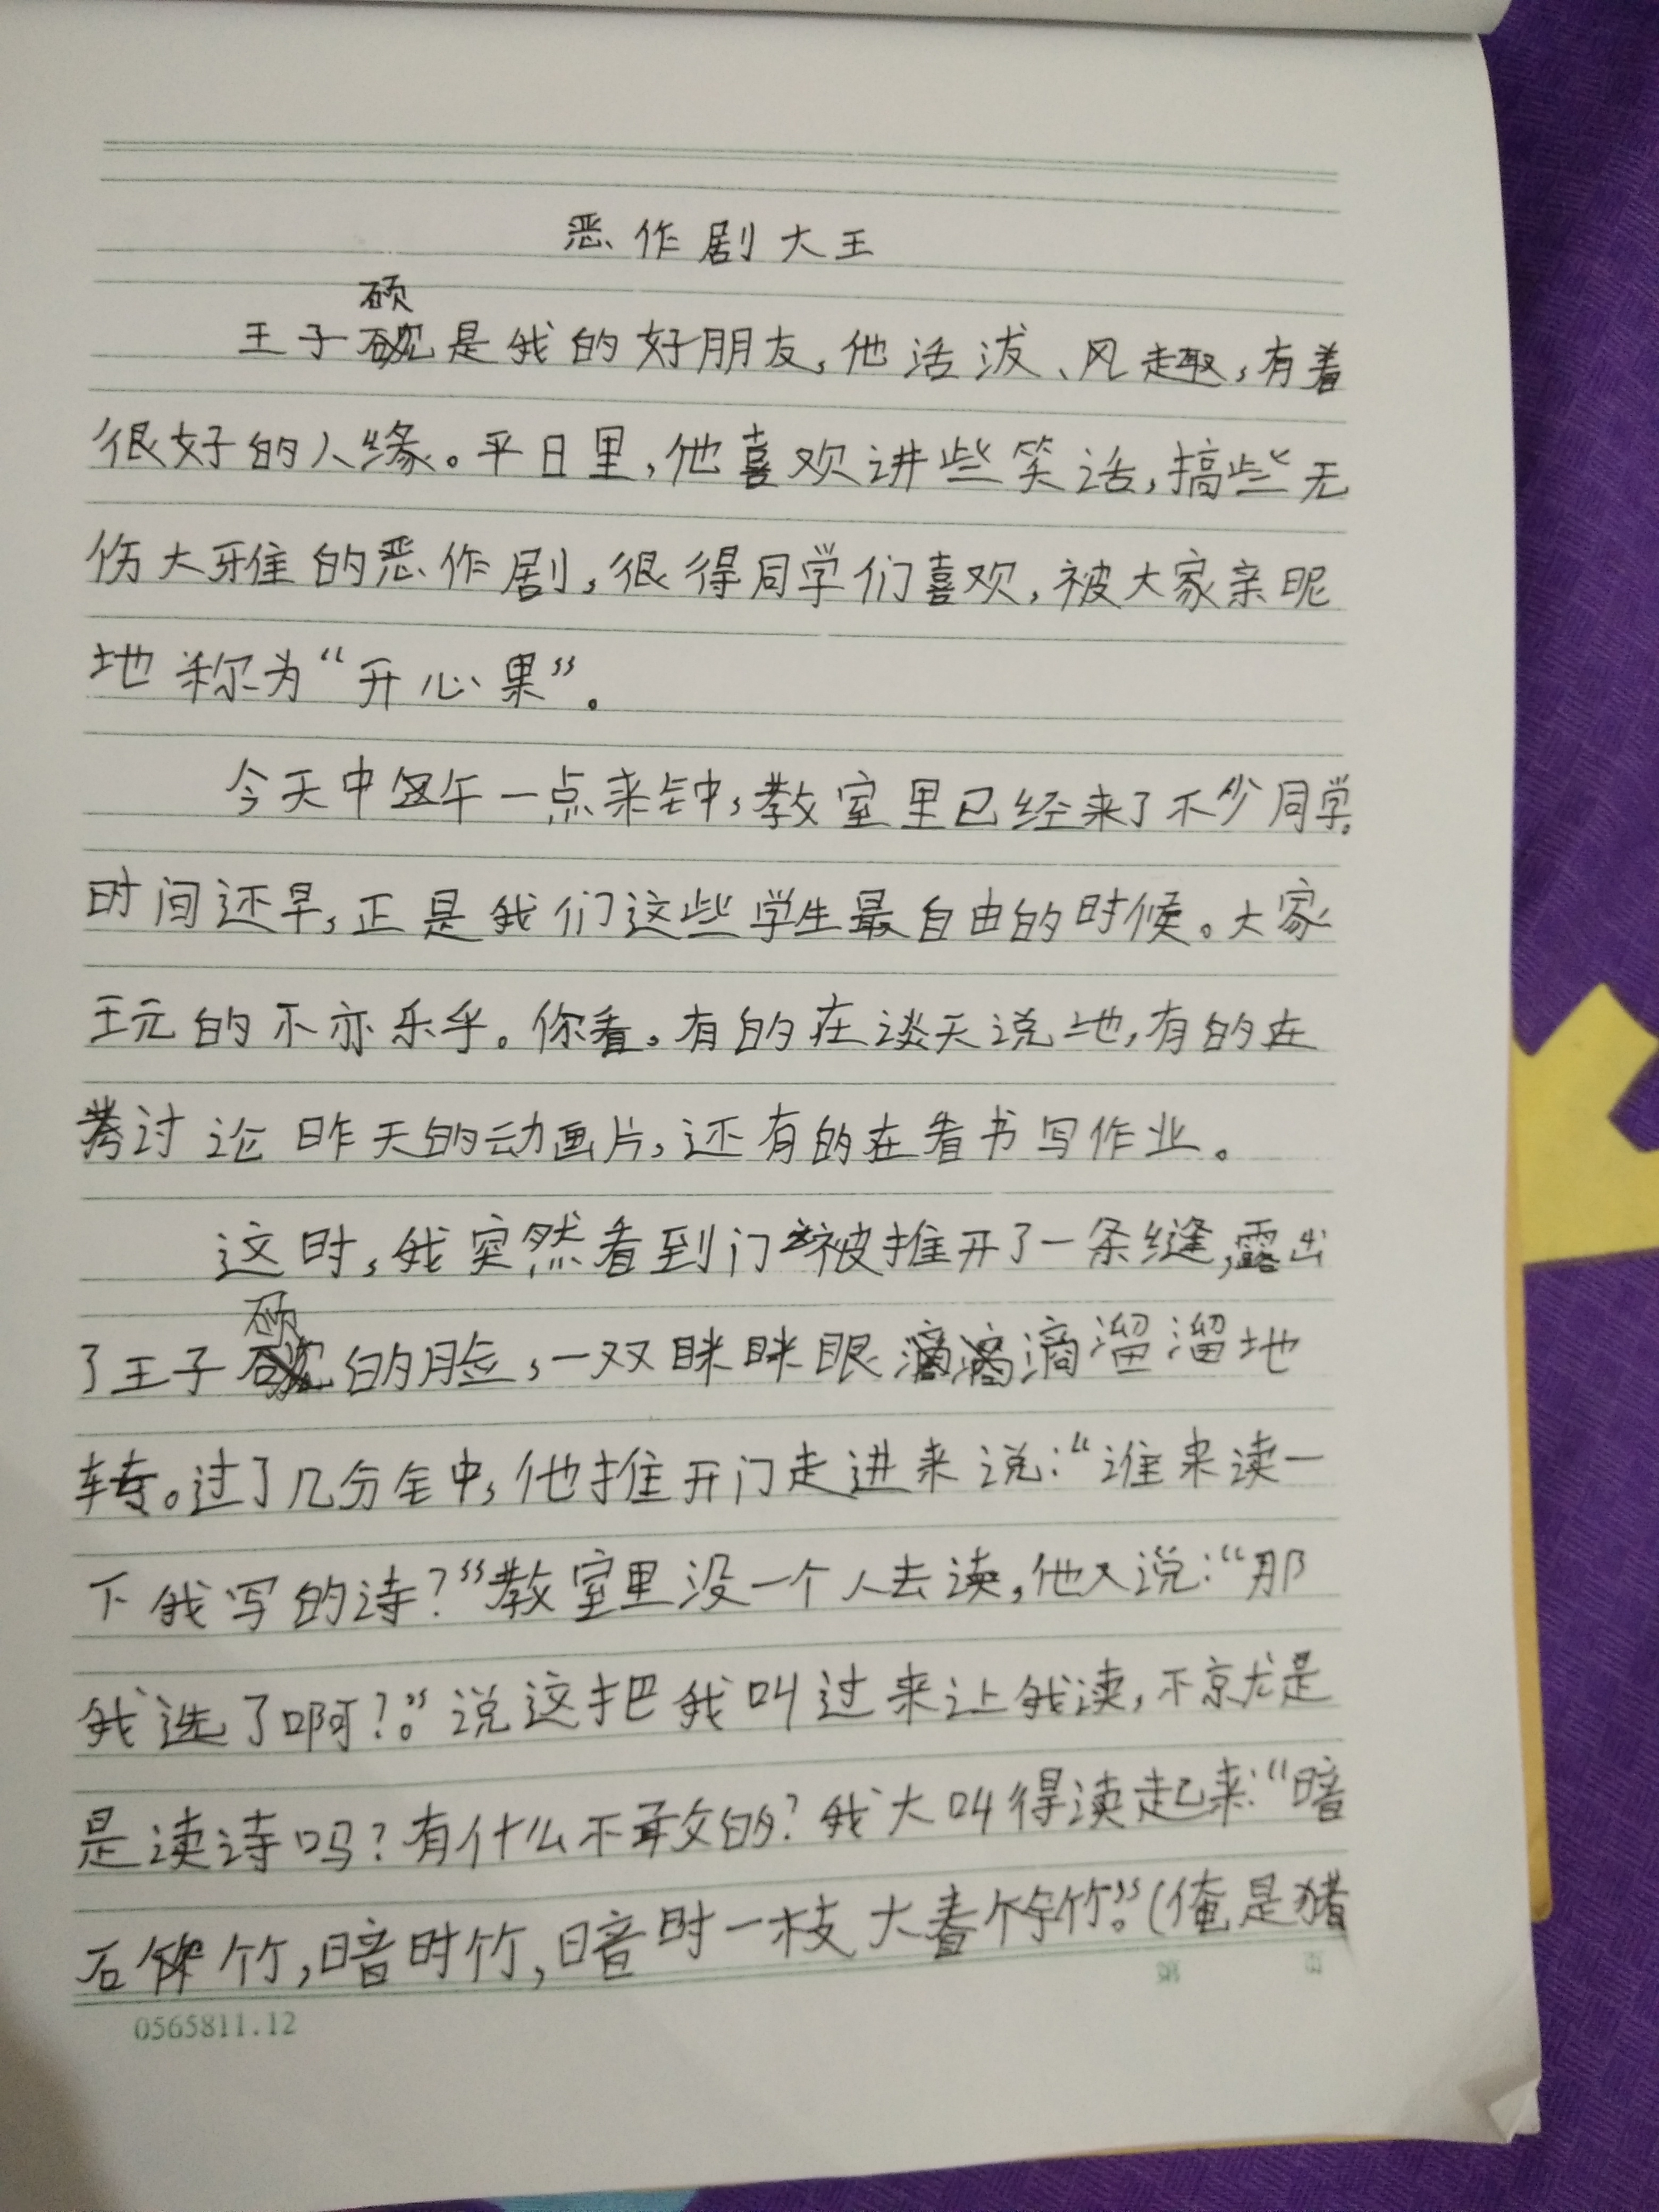 恶作剧大王
硕
王子是我的好朋友,他活泼、风趣,有着
很好的人缘。平日里,他喜欢讲些笑话,搞些无
伤大雅的恶作剧,很得同学们喜欢,被大家亲昵
地称为“开心果”。
今天中午一点来钟,教室里已经来了不少同学.
时间还早,正是我们这些学生最自由的时候。大家
玩的不亦乐乎。你看,有的在谈天说地,有的在
讨论昨天的动画片,还有的在看书写作业。
这时,我突然看到门被推开了一条缝,露出
硕
了王子的脸,一双眯眯眼滴溜溜地
转。过了几分钟,他推开门走进来说:“谁来读一
下我写的诗?”教室里没一个人去读,他又说:“那
我选了啊?。”说这把我叫过来让我读,不就是
是读诗吗?有什么不敢的?我大叫得读起来:“暗
石竹,暗时竹,暗时一枝大春竹。”(俺是猪
第 页
0565811.12